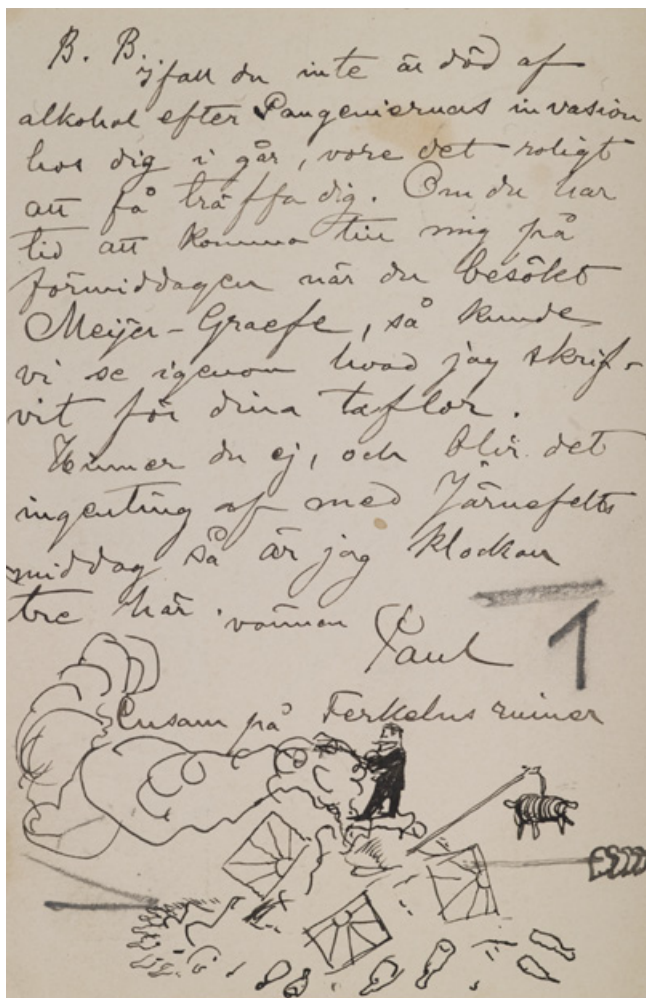 B. B.
Ifall du inte är död af
alkohol efter Pangeniernas invasion
hos dig i går, vore det roligt
att få träffa dig. Om du har
tid att komma till mig på
förmiddagen när du besökt
Meijer-Graefe, så kunde
vi se igenom hvad jag skrif-
vit för dina taflor.
Hinner du ej, och blir det
ingenting af med Järnefelts
middag så är jag klockan
tre här. vännen
Paul
1
Ensam på Ferkelns ruiner